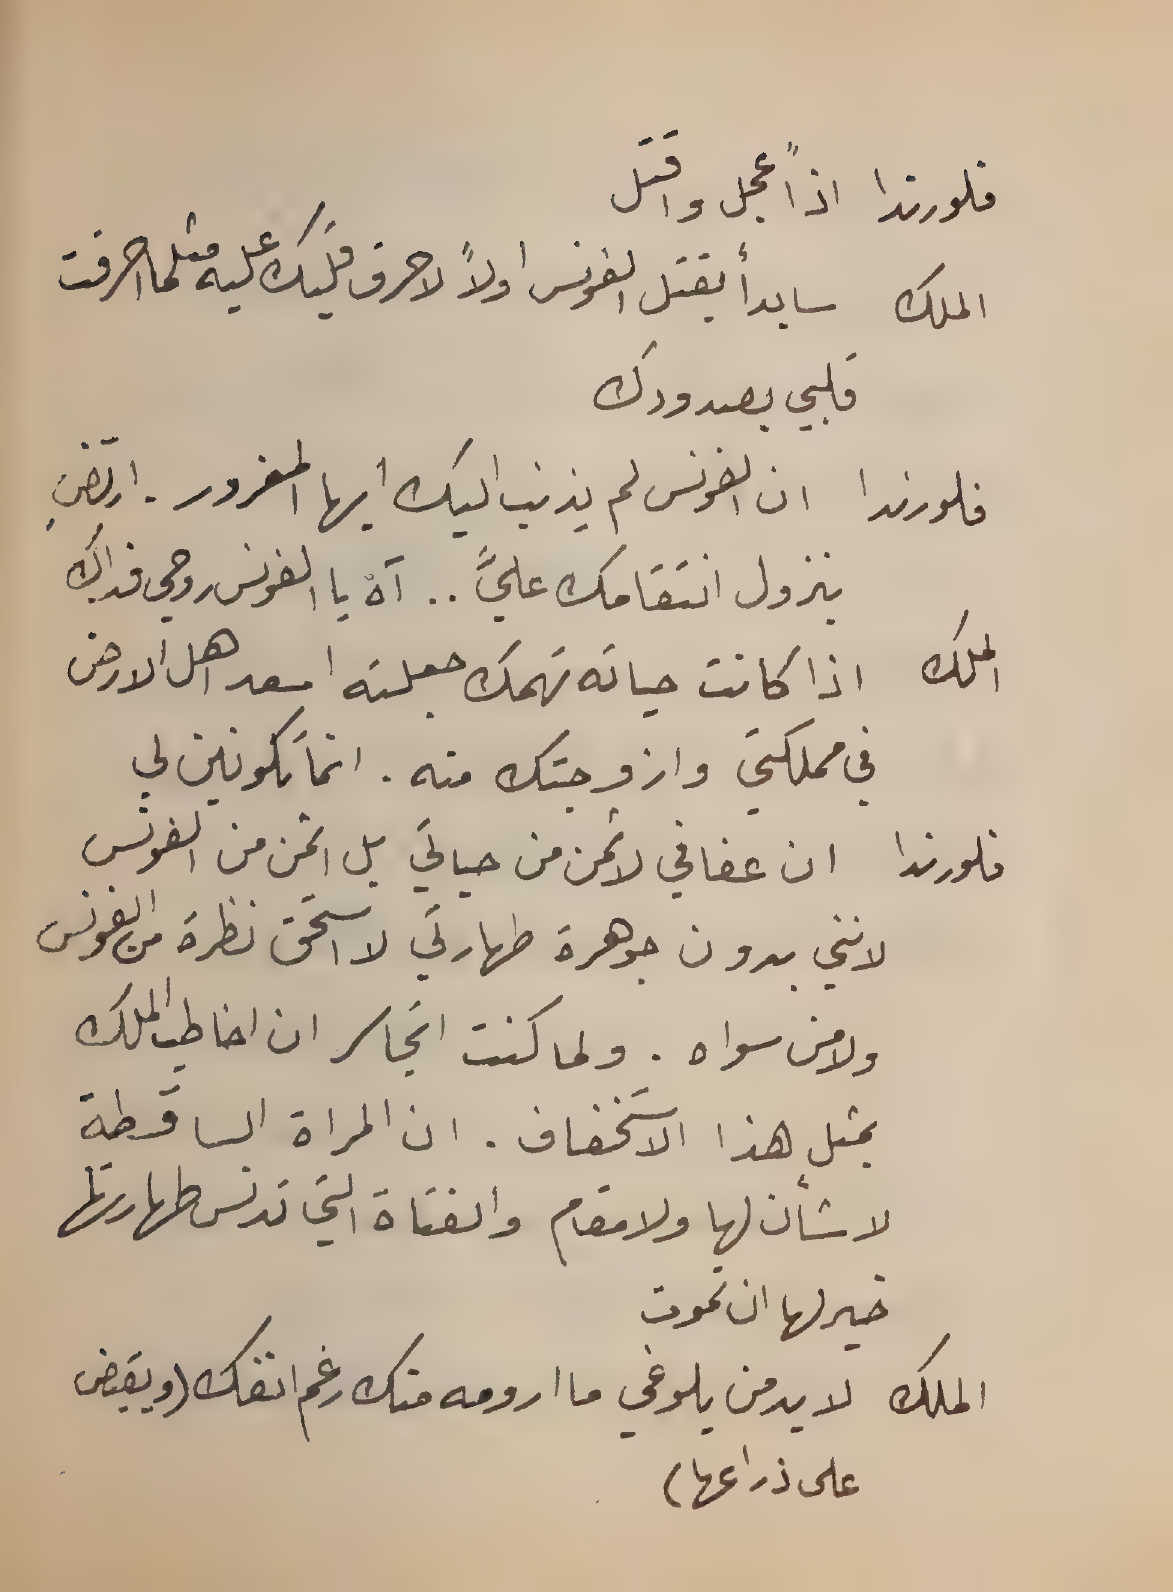 فلورندا اذاً عجل واقتل
الملك سابدأ بقتل الفونس اولاً لاحرق قلبك عليه مثلما احرقت
قلبي بصدودك
فلورندا ان الفونس لم يذنب اليك ايها المغرور . ارتضِ
بنزول انتقامك عليَّ .. آه يا الفونس روحي فداك
الملك اذا كانت حياته تهمك جعلته اسعد اهل الارض
في مملكتي وازوجتك منه . انما تكونين لي
فلورندا ان عفافي لاثمن من حياتي بل اثمن من الفونس
لانني بدون جوهرة طهارتي لا استحق نظرة من الفونس
ولا من سواه . ولما كنت اتجاسر ان اخاطب الملك
بمثل هذا الاستخفاف . ان المراة الساقطة
لا شأن لها ولا مقام والفتاة التي تدنس طهارتها
خير لها ان تموت
الملك لا بد من بلوغي ما ارومه منك رغم انفك (ويقبض
على ذراعها)